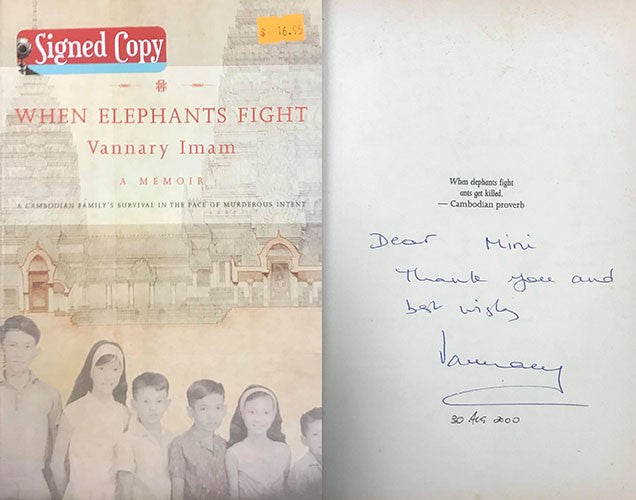 Signed Copy
$ 16.95
WHEN ELEPHANTS FIGHT
Vannary Imam
A MEMOIR
A CAMBODIAN FAMILY'S SURVIVAL IN THE FACE OF MURDEROUS INTENT
When elephants fight
ants get killed.
— Cambodian proverb
Dear Mini
Thank you and
best wishes
Vannary
30 AUG 2000